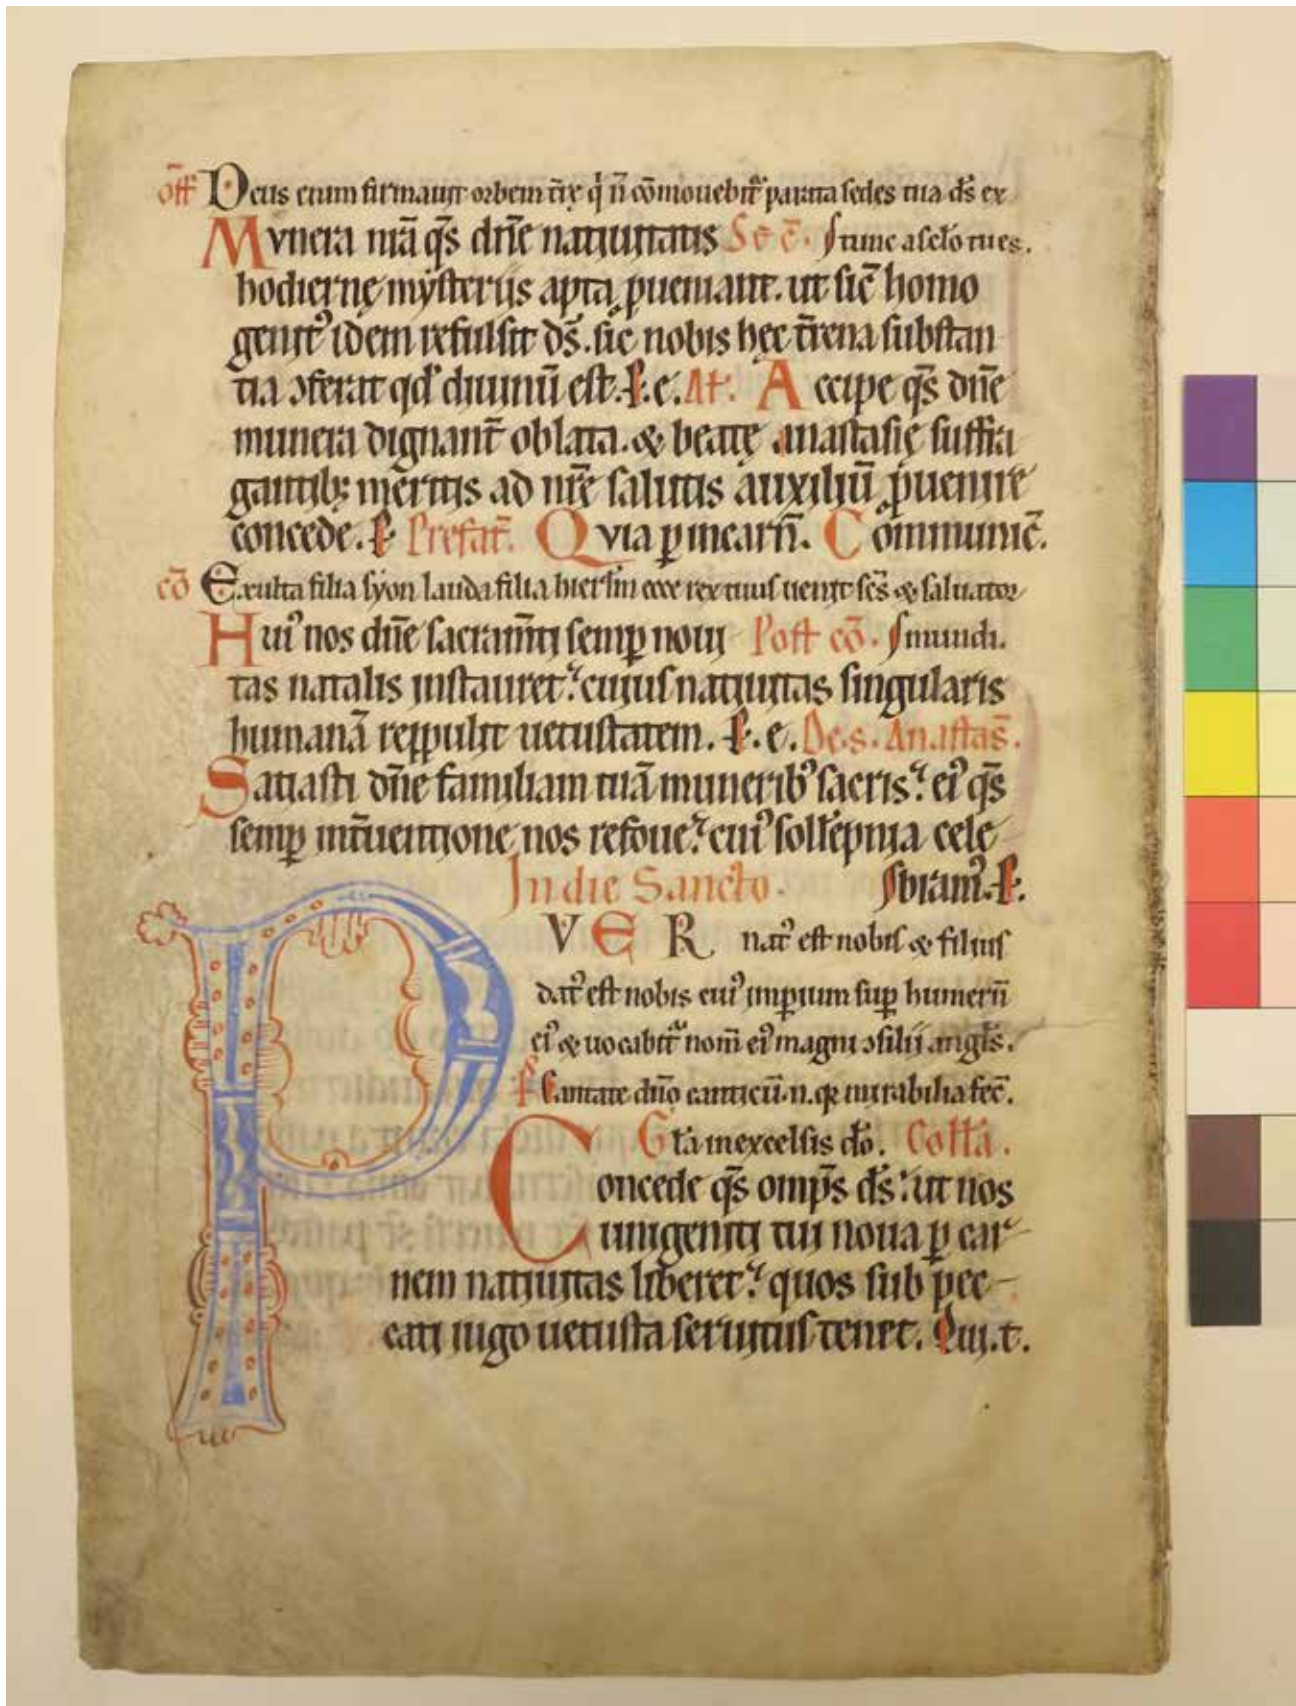 off̄ Deus enim firmauit orbem tr̄ę q̇ n̄ cōmouebit᷑ parata sedes tua ds̄ ex
Mvnera nr̄a qs̄ dn̄e natiuitatis Sec̄. ſtunc a sc̄lo tu es.
hodiernę mysteriis apta ꝓueniant. ut sic̄ homo
genitꝰ idem refulsit ds̄. sic nobis hęc tr̄rena substan
tia ꝯferat qd̄ diuinū est. P. e. Al̄. Accipe qs̄ dn̄e
munera dignant̄ oblata. & beatę anastasię suffra
gantibꝫ meritis ad nr̄ę salutis auxiliū ꝓuenire
concede. P. Prefat̄. Qvia ꝑ incarn̄. Communic̄.
cō Exulta filia syon lauda filia hierl̄m ecce rex tuus uenit sc̄s & saluator
Huiꝰ nos dn̄e sacram̄ti semꝑ noui Post cō. ſmundi.
tas natalis instauret. cuius natiuitas singularis
humanā reppulit uetustatem. P. e. De. s. Anastas̄.
Satiasti dn̄e familiam tuā muneribꝰ sacris. eiꝰ qs̄
semꝑ int̄uentione nos refoue. cuiꝰ sollēpnia cele
In die Sancto. ſbramꝰ. P.
PVER natꝰ est nobis & filius
datꝰ est nobis cuiꝰ imꝑium suꝑ humerū
eiꝰ & uocabit᷑ nom̄ eiꝰ magni ꝯsilii angl̄s.
ps Cantate dn̄o canticū. n. qr mirabilia fec̄.
Gl̄a in excelsis dō. Coll̄a.
Concede qs̄ omp̄s ds̄. ut nos
unigeniti tui noua ꝑ car
nem natiuitas liberet. quos sub pec
cati iugo uetusta seruitus tenet. Qui. t.